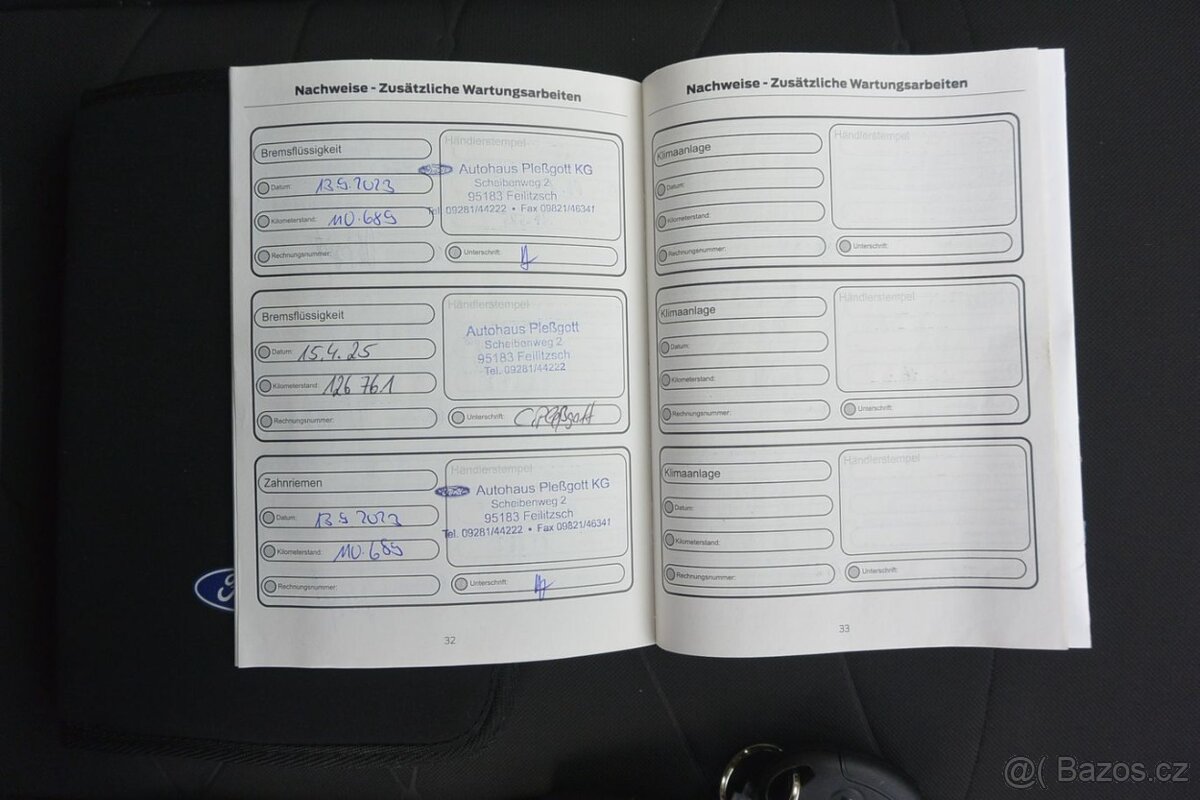 Nachweise - Zusätzliche Wartungsarbeiten
Bremsflüssigkeit
Händlerstempel
Autohaus Pleßgott KG
Scheibenweg 2
95183 Feilitzsch
Tel. 09281/44222 • Fax 09821/46341
Datum: 13.9.2023
Kilometerstand: 110.689
Rechnungsnummer:
Unterschrift:
Bremsflüssigkeit
Händlerstempel
Autohaus Pleßgott
Scheibenweg 2
95183 Feilitzsch
Tel. 09281/44222
Datum: 15.4.25
Kilometerstand: 126 761
Rechnungsnummer:
Unterschrift:
Zahnriemen
Händlerstempel
Ford Autohaus Pleßgott KG
Scheibenweg 2
95183 Feilitzsch
Tel. 09281/44222 • Fax 09821/46341
Datum: 13.9.2023
Kilometerstand: 110.689
Rechnungsnummer:
Unterschrift:
32
Nachweise - Zusätzliche Wartungsarbeiten
Klimaanlage
Händlerstempel
Datum:
Kilometerstand:
Rechnungsnummer:
Unterschrift:
Klimaanlage
Händlerstempel
Datum:
Kilometerstand:
Rechnungsnummer:
Unterschrift:
Klimaanlage
Händlerstempel
Datum:
Kilometerstand:
Rechnungsnummer:
Unterschrift:
33
@( Bazos.cz